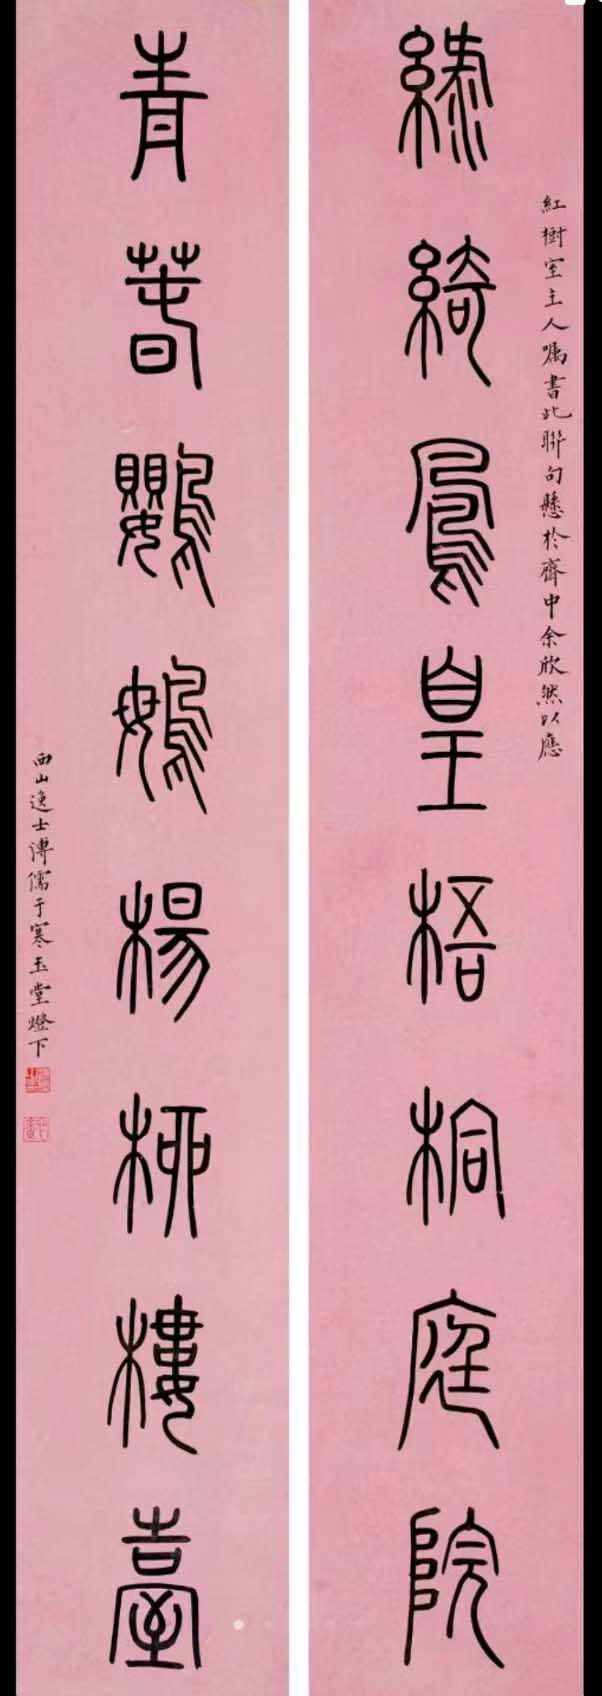 紅樹室主人嘱書此聯句懸於齊中余欣然以應
綠綺鳳皇梧桐庭院
青春鸚䳇楊柳樓臺
西山逸士溥儒于寒玉堂燈下